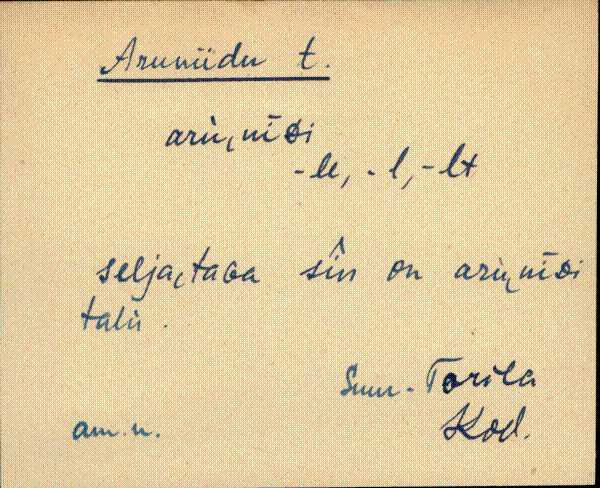 Aruniidu t.
aru̬nīdi
-le, -l, -lt
selja̬taGa sîn on aru̬nīdi
talu.
Suur-Torila
am.n. Kod.